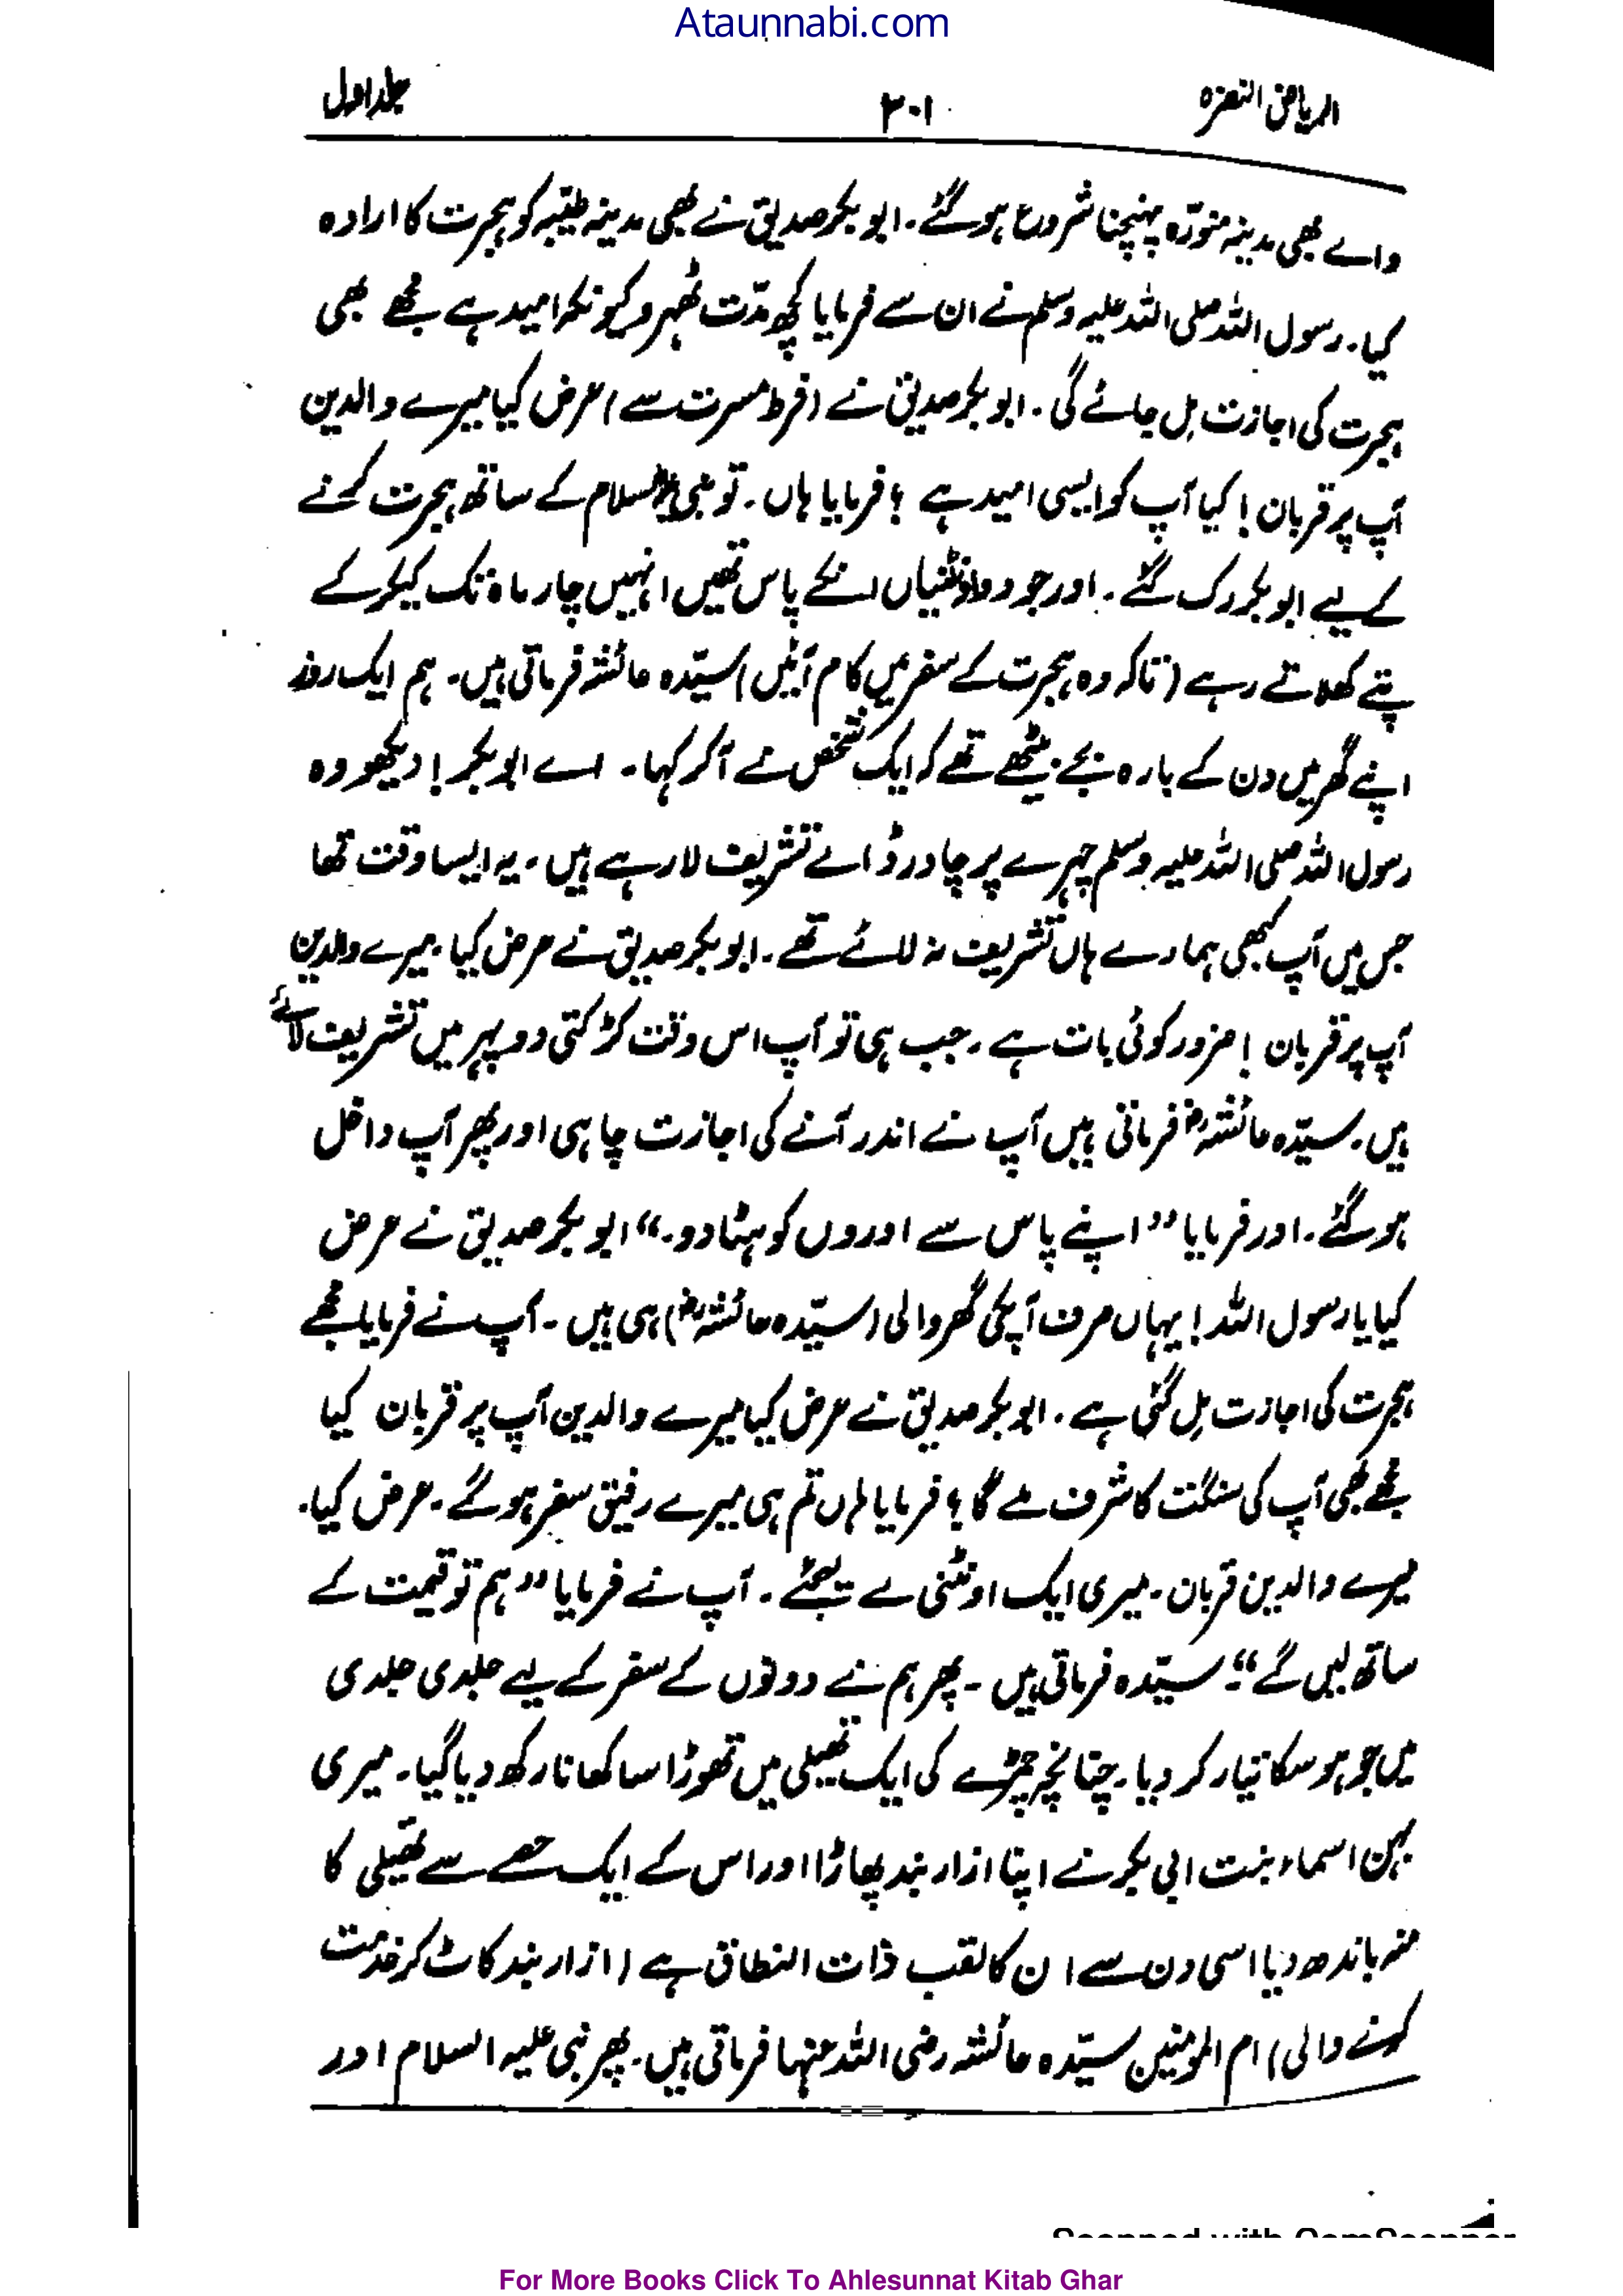 Ataunnabi.com
الریاض النضرہ ۳۰۱ جلد اول
والے بھی مدینہ منوّرہ پہنچنا شروع ہو گئے۔ ابو بکر صدیق نے بھی مدینہ طیّبہ کو ہجرت کا ارادہ
کیا۔ رسول اللہ صلی اللہ علیہ وسلم نے ان سے فرمایا کچھ مدّت ٹھہرو کیونکہ امید ہے مجھے بھی
ہجرت کی اجازت مِل جائے گی۔ ابو بکر صدیق نے (فرط مسرت سے) عرض کیا میرے والدین
آپ پر قربان! کیا آپ کو ایسی امید ہے؟ فرمایا ہاں۔ تو نبی علیہ السلام کے ساتھ ہجرت کرنے
کے لیے ابو بکر رک گئے۔ اور جو دو اونٹنیاں انکے پاس تھیں انہیں چار ماہ تک کیکر کے
پتے کھلاتے رہے (تاکہ وہ ہجرت کے سفر میں کام آئیں) سیّدہ عائشہ فرماتی ہیں۔ ہم ایک روز
اپنے گھر میں دن کے بارہ بجے بیٹھے تھے کہ ایک شخص نے آکر کہا۔ اے ابو بکر! دیکھو وہ
رسول اللہ صلی اللہ علیہ وسلم چہرے پر چادر ڈالے تشریف لا رہے ہیں۔ یہ ایسا وقت تھا
جس میں آپ کبھی ہمارے ہاں تشریف نہ لائے تھے۔ ابو بکر صدیق نے عرض کیا۔ میرے والدین
آپ پر قربان! ضرور کوئی بات ہے۔ جب ہی تو آپ اس وقت کڑکتی دوپہر میں تشریف لائے
ہیں۔ سیّدہ عائشہؓ فرماتی ہیں آپ نے اندر آنے کی اجازت چاہی اور پھر آپ داخل
ہو گئے۔ اور فرمایا ”اپنے پاس سے اوروں کو ہٹا دو۔“ ابو بکر صدیق نے عرض
کیا یا رسول اللہ! یہاں صرف آپکی گھر والی (سیّدہ عائشہؓ) ہی ہیں۔ آپ نے فرمایا مجھے
ہجرت کی اجازت مِل گئی ہے۔ ابو بکر صدیق نے عرض کیا میرے والدین آپ پر قربان کیا
مجھے بھی آپ کی سنگت کا شرف ملے گا؟ فرمایا ہاں تم ہی میرے رفیق سفر ہو گے۔ عرض کیا۔
میرے والدین قربان۔ میری ایک اونٹنی لے لیجئے۔ آپ نے فرمایا ”ہم تو قیمت کے
ساتھ لیں گے“۔ سیّدہ فرماتی ہیں۔ پھر ہم نے دونوں کے سفر کے لیے جلدی جلدی
میں جو ہو سکا تیار کر دیا۔ چنانچہ چمڑے کی ایک تھیلی میں تھوڑا سا کھانا رکھ دیا گیا۔ میری
بہن اسماء بنت ابی بکر نے اپنا ازار بند پھاڑا اور اس کے ایک حصے سے تھیلی کا
منہ باندھ دیا اسی دن سے ان کا لقب ذات النطاق ہے (ازار بند کاٹ کر خدمت
کرنے والی) ام المومنین سیّدہ عائشہ رضی اللہ عنہا فرماتی ہیں۔ پھر نبی علیہ السلام اور
Scanned with CamScanner
For More Books Click To Ahlesunnat Kitab Ghar